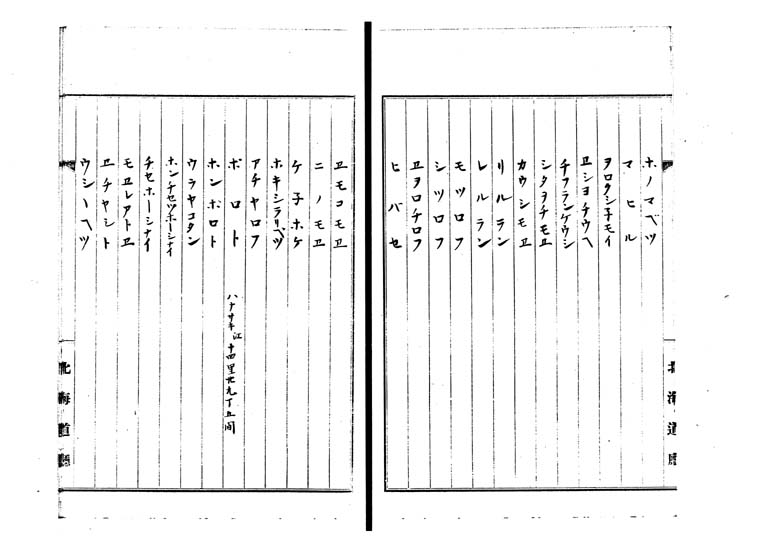 ホノマベツ
マヒル
ヲロクシ子モイ
ヱシヨチウヘ
チフランゲウシ
シタヲチモヱ
カウシモヱ
リルラン
レルラン
モツロフ
シツロフ
ヱヲロチロフ
ヒバセ
北海道廳
ヱモコモヱ
ニノモヱ
ケ子ホケ
ホキシラリベツ
アチヤロフ
ポロト ハナサキ江十四里廿九丁五間
ホンポロト
ウラヤコタン
ホンチセツポーシナイ
チセホーシナイ
モヱレアトヱ
ヱチヤシト
ウシヽベツ
北海道廳